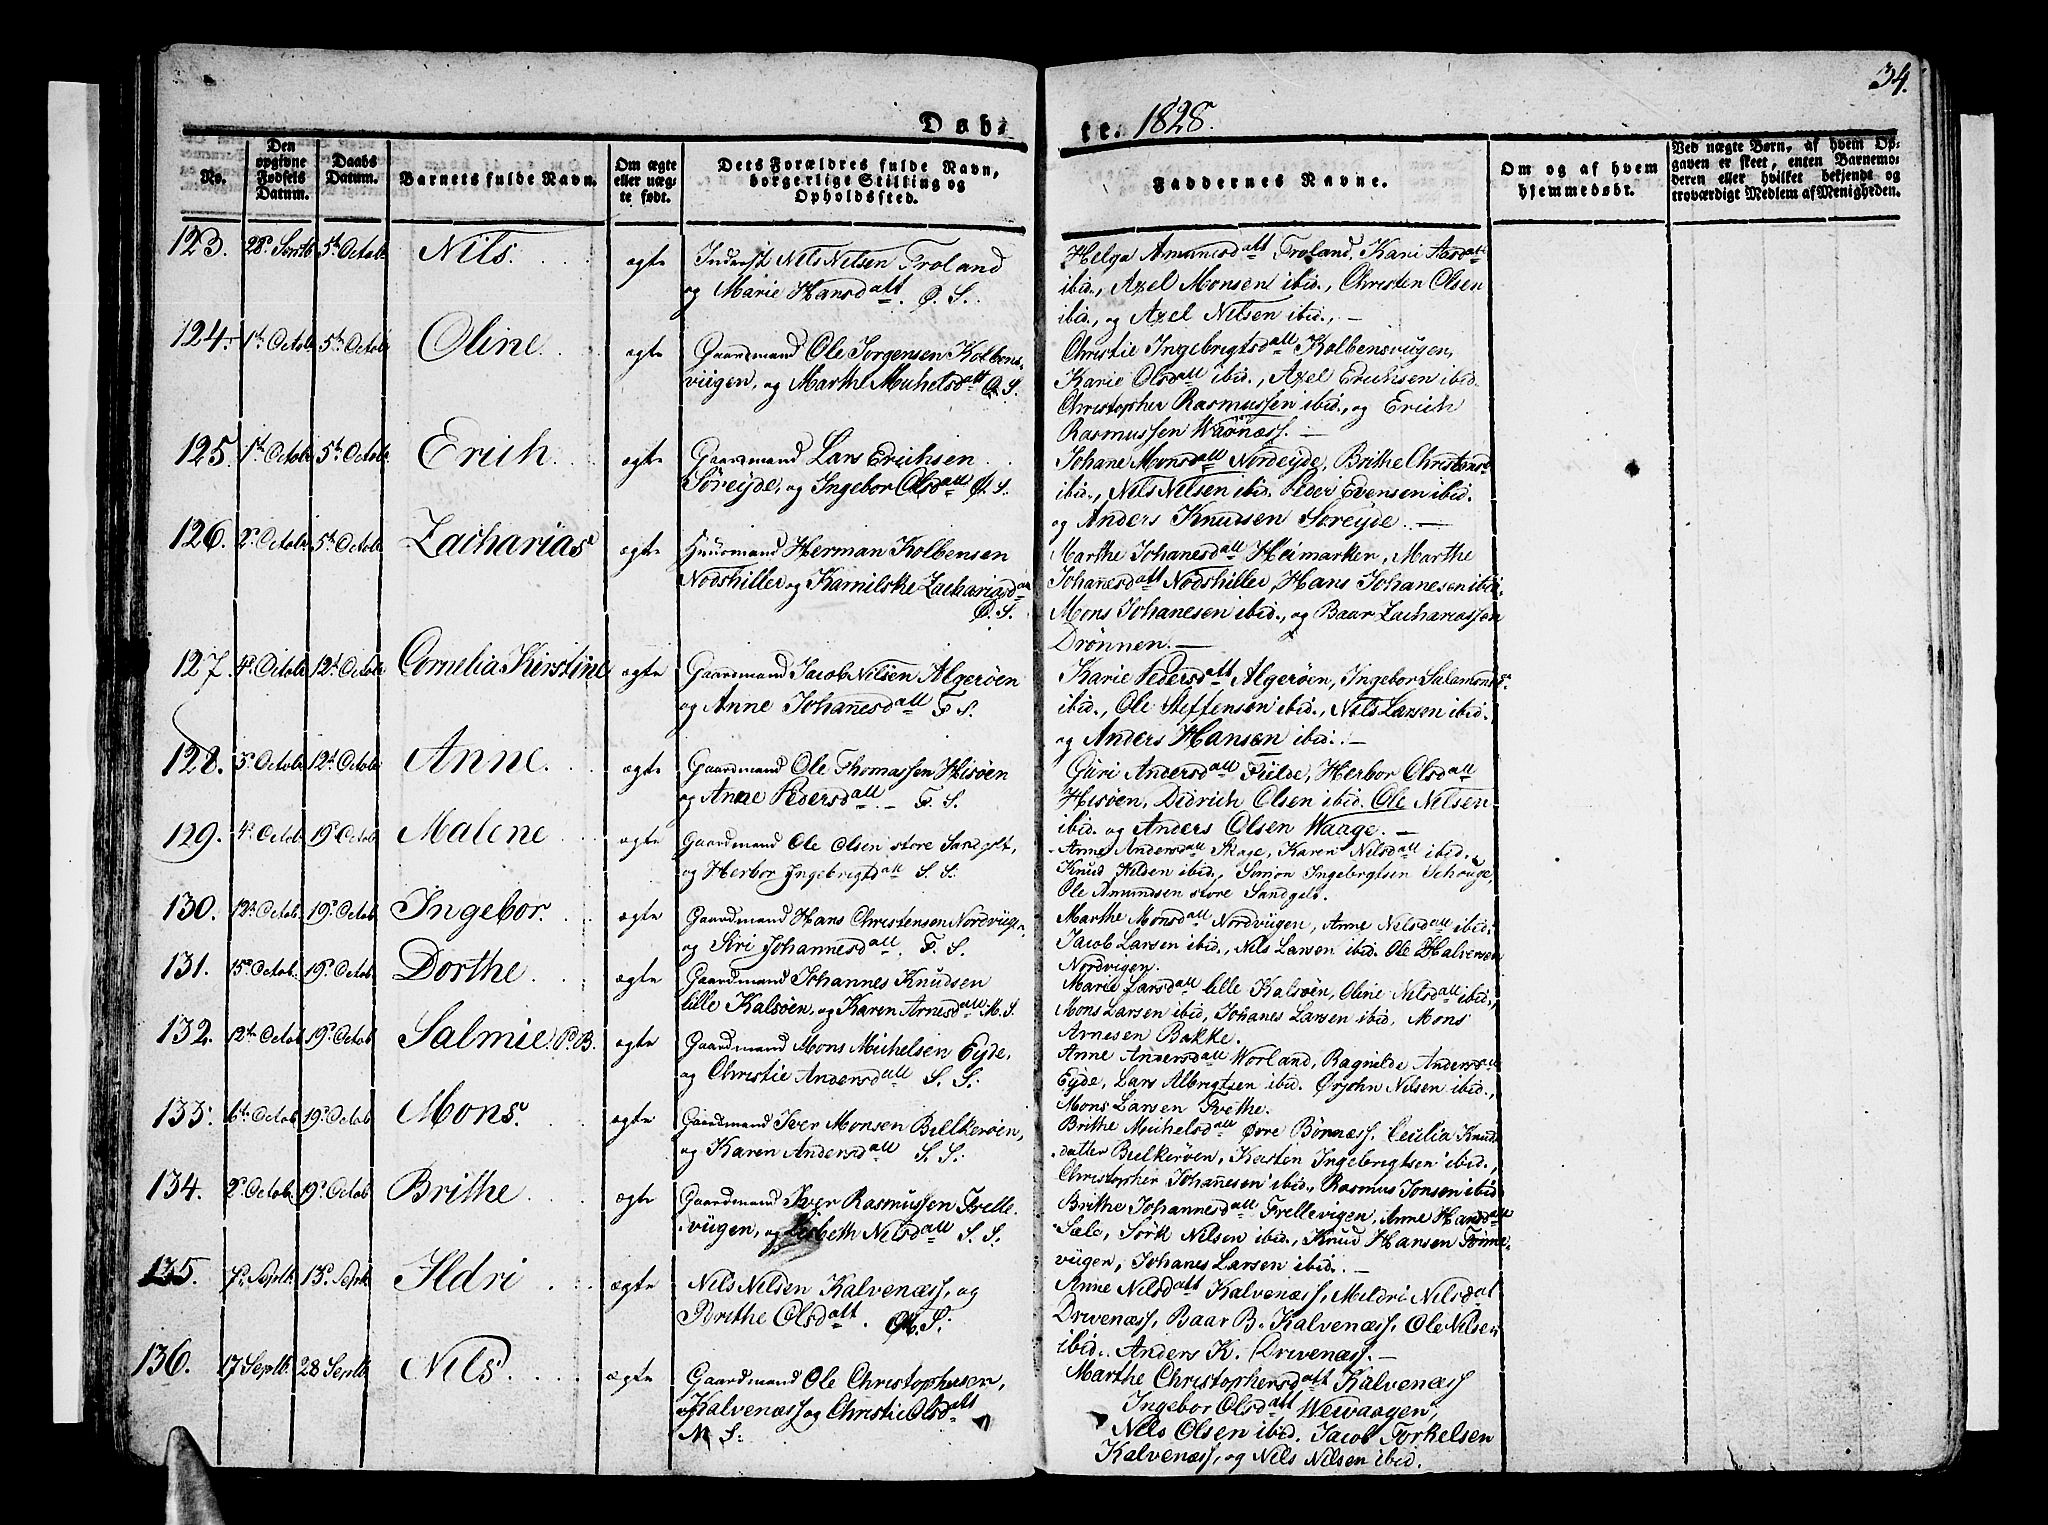 34.
Døb- te. 1828.
No.
Den opgivne Fødsels Datum.
Daabs Datum.
Barnets fulde Navn.
Om ægte eller uægte født.
Dets Forældres fulde Navn, borgerlige Stilling og Opholdssted.
Faddernes Navne.
Om og af hvem hjemmedøbt.
Ved uægte Børn, af hvem Opgaven er skeet, enten Barnemoderen eller hvilket bekjendt og troværdigt Medlem af Menigheden.
123. 28de Septb 5te Octob Nils. ægte
Inderst Nils Nilsen Troland
og Marie Hansdatt. Ø. S.
Helga Amunesdatt Troland, Kari Aasdatt
ibid., Axel Monsen ibid., Christen Olsen
ibid., og Axel Nilsen ibid., —
124. 1te Octob 5te Octob Oline. ægte
Gaardmand Ole Jørgensen Kolbens-
viigen, og Marthe Michelsdatt Ø. S.
Christie Ingebrigtsdatt Kolbensviigen,
Karie Olsdatt ibid., Axel Erichsen ibid.
Christopher Rasmussen ibid., og Erich
Rasmussen Waanæss. —
125. 1te Octob 5te Octob Erich ægte
Gaardmand Lars Erichsen
Søreyde, og Ingebor Olsdatt Ø. S.
Johane Monsdatt Nordeyde, Brithe Christensd
ibid., Nils Nilsen ibid. Peder Evensen ibid.
og Anders Knudsen Søreyde. —
126. 2de Octob 5te Octob Zacharias ægte
Huusmand Herman Kolbensen
Nodshiller og Kamilske Zachariasd
Ø. S.
Marthe Johanesdatt Heimarken, Marthe
Johanesdatt Nodshiller, Hans Johanesen ibid.
Mons Johanesen ibid., og Baar Zachariassøn
Drønnen. —
127. 4de Octob 12te Octob Cornelia Kirstine ægte
Gaardmand Jacob Nilsen Algerøen
og Anne Johanesdatt F. S.
Karie Pedersdatt Algerøen, Ingebor Salamonsd
ibid., Ole Steffensen ibid., Nils Larsen ibid.
og Anders Hansen ibid. —
128. 5te Octob 12te Octob Anne. ægte
Gaardmand Ole Thomassen Hisøen
og Anne Pedersdatt. — F. S.
Guri Andersdatt Fiilde, Herbor Olsdatt
Hisøen, Didrich Olsen ibid. Ole Nilsen
ibid. og Anders Olsen Waage. —
129. 4de Octob 19de Octob Malene ægte
Gaardmand Ole Olsen store Sandgolt,
og Herbor Ingebrigtdatt S. S.
Anne Andersdatt Skage, Karen Nilsdatt ibid.
Knud Hilden ibid., Simon Ingebrigtsen Schouge,
Ole Amundsen store Sandgolt.
130. 19de Octob 19de Octob Ingebor. ægte
Gaardmand Hans Christensen Nordviigen
og Siri Johannesdatt. F. S.
Marthe Monsdatt Nordviigen, Anne Nielsdatt ibid.
Jacob Larsen ibid., Nils Larsen ibid. Ole Halversen
Nordvigen.
131. 15de Octob. 19de Octob Dorthe. ægte
Gaardmand Johannes Knudsen
lille Kalsøen, og Karen Arnesdatt M. S.
Marie Larsdatt lille Kalsøen, Oline Nilsdatt ibid.,
Mons Larsen ibid, Johanes Larsen ibid, Mons
Arnesen Bakke.
132. 12te Octob 19de Octob Salmie. P. B. ægte
Gaardmand Mons Michelsen Eyde,
og Christie Andersdatt S. S.
Anne Andersdatt Worland, Ragnilde Andersdatt
Eyde, Lars Albrigtsen ibid. Ørjohn Nilsen ibid.,
Mons Larsen Tvethe.
133. 6te Octob 19de Octob Mons. ægte
Gaardmand Iver Monsen Bielkerøen,
og Karen Andersdatt S. S.
Brithe Michelsdatt Øvre Børnæss, Cecilia Knuds
datter Bielkerøen, Karsten Ingebrigtsen ibid.,
Christopher Johanesen ibid., Rasmus Jonsen ibid
134. 2de Octob. 19de Octob Brithe ægte
Gaardmand Iver Rasmussen Trelle
viigen, og Lisbeth Nilsdatt S. S.
Brithe Johannesdatt Trellevigen, Anne Hansdatt
Sæle, Sørk Nilsen ibid., Knud Hansen Tømme-
viigen, Johanes Larsen ibid. —
135. 7de Septb 13de Septb Ildri ægte
Nils Nilsen Kalvenæss, og
Brithe Olsdatt. M. S.
Anne Nilsdatt Kalvenæss, Mildri Nilsdat
Drivenæss, Baar B. Kalvenæss, Ole Nilsen
ibid., Anders K. Drivenæss. —
136. 17 Septb. 28 Septb Nils. ægte
Gaardmand Ole Christophersen,
Kalvenæss og Christie Olsdatt
M. S.
Marthe Christophersdatt Kalvenæss
Ingebor Olsdatt Wevaagen,
Nils Olsen ibid. Jacob Torkelsen
Kalvenæss, og Nils Nilsen ibid.